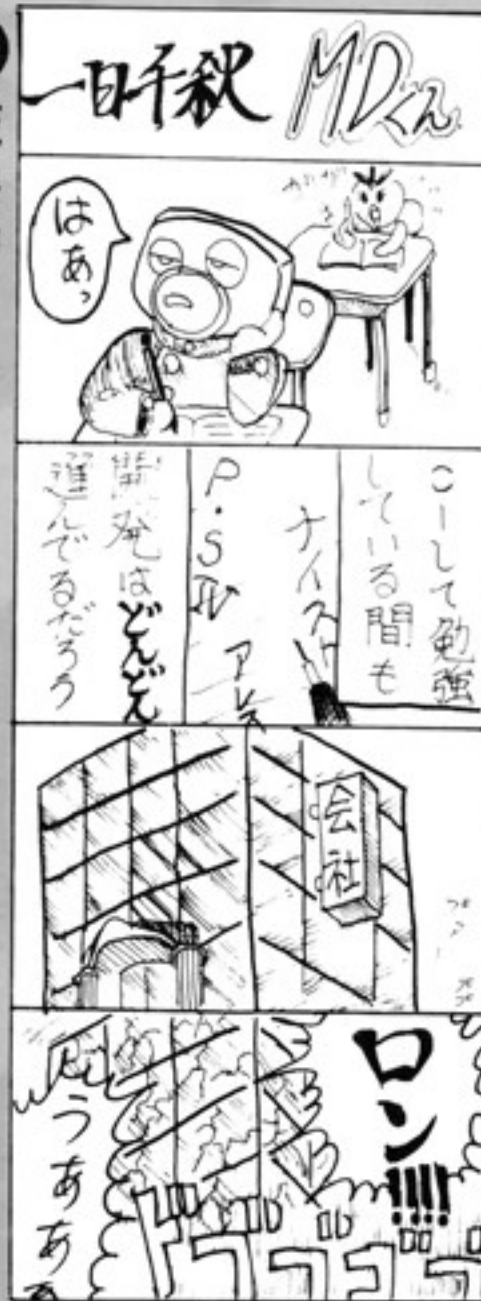 一日千秋 MDくん
はあっ
こーして勉強
している間も
ナイスト
P.SⅣ
アレス
開発はどんどん
進んでるだろう
会社
ロン!!!!
ドゴゴゴゴ
うああぁ